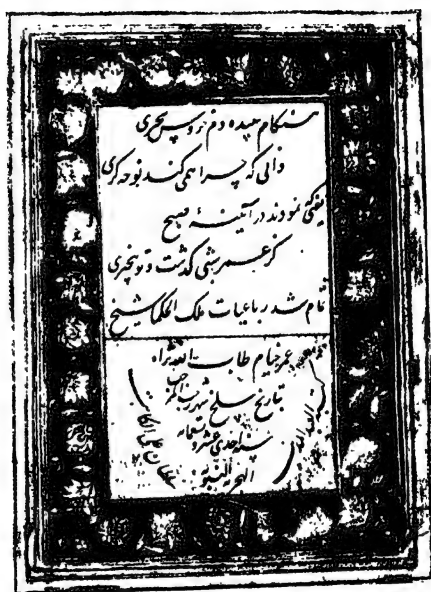 هنگام سپیده دم خروس سحری
دانی که چرا همی کند نوحه گری
یعنی که نمودند در آیینهٔ صبح
کز عمر شبی گذشت و تو بیخبری
تمام شد رباعیات ملک الحکما شیخ
عمر خیام طاب الله ثراه
بتاریخ سلخ شهر رجب
سنه احدی عشر و تسعمائه
الهجریة النبویه
سلطان علی الکاتب